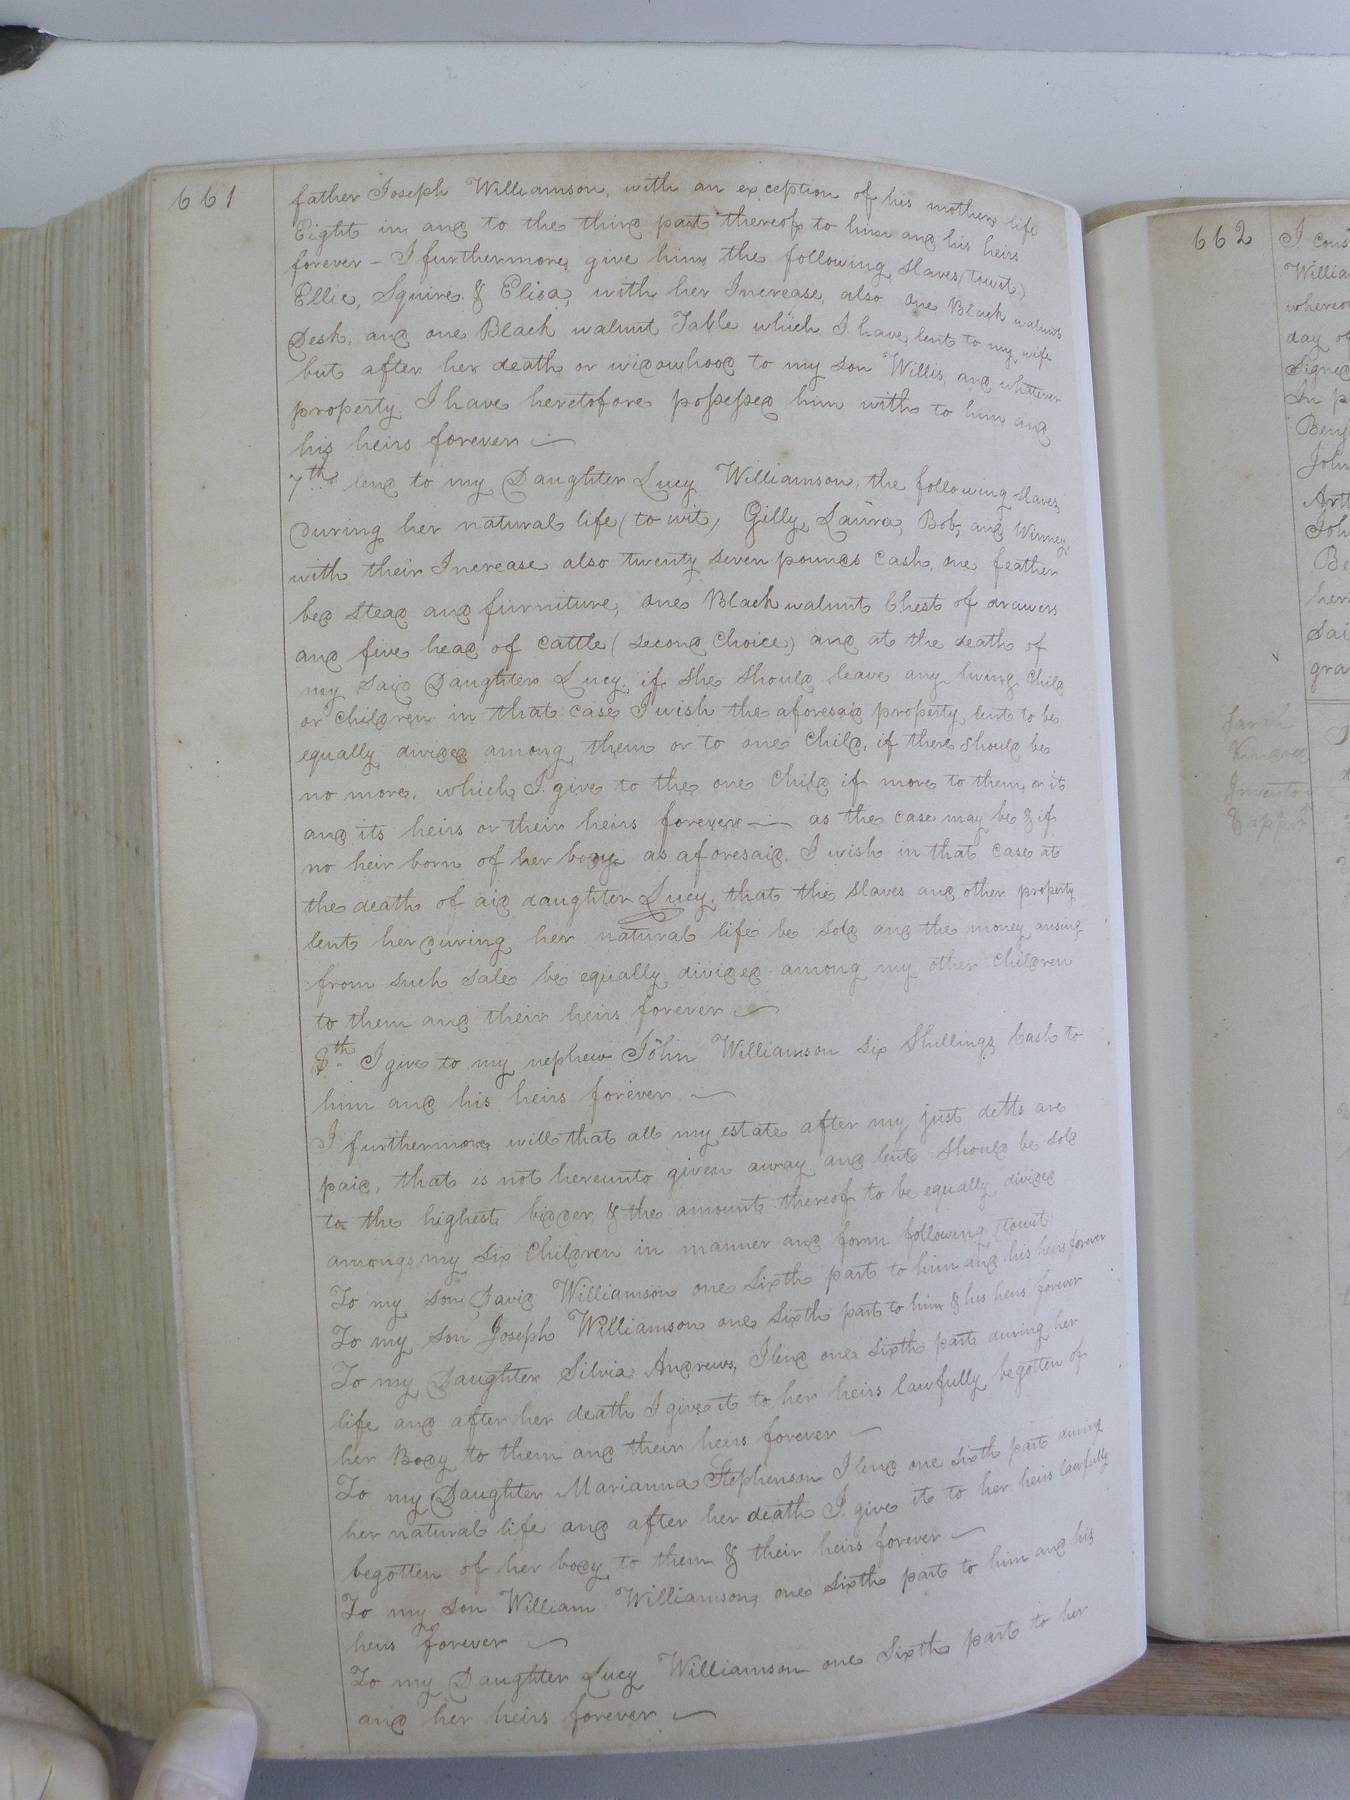 661
father Joseph Williamson, with an exception of his mothers life
Eight in and to the third part thereof, to him and his heirs
forever – I furthermore give him the following slaves (towit)
Ellic, Squire & Eliza, with her Increase, also One Black walnut
Desk, and one Black walnut Table which I have lent to my wife
but after her death or widowhood to my son Willis, and whatever
property I have heretofore possessed him with to him and
his heirs forever —
7th lend to my Daughter Lucy Williamson, the following slaves,
During her natural life (to wit, Gilly, Laura, Bob, and Winney,
with their Increase also twenty seven pounds Cash, one feather
bed stead and furniture, one Black walnut Chest of drawers
and five head of cattle (second choice) and at the death of
my said Daughter Lucy, if she should leave any living child
or children in that case I wish the aforesaid property lent to be
equally divided among them or to one child, if there should be
no more, which I give to the one child if more to them, or it
and its heirs or their heirs forever — as the case may be & if
no heir born of her body as aforesaid, I wish in that case at
the death of aid daughter Lucy, that the slaves and other property
lent her during her natural life be sold and the money arising
from such sale be equally divided among my other children
to them and their heirs forever —
8th I give to my nephew John Williamson six Shillings Cash to
him and his heirs forever —
I furthermore will that all my estate after my just debts are
paid, that is not hereunto given away and lent should be sold
to the highest bidder, & the amount thereof to be equally divided
among my six Children in manner and form following (towit)
To my son David Williamson one sixth part to him and his heirs forever
To my son Joseph Williamson one sixth part to him & his heirs forever
To my Daughter Silvia Andrews, I lend one sixth part during her
life and after her death I give it to her heirs lawfully begotten of
her Body to them and their heirs forever —
To my Daughter Marianna Stephenson I lend one sixth part during
her natural life and after her death I give it to her heirs lawfully
begotten of her body to them & their heirs forever —
To my son William Williamson, one sixth part to him and his
heirs forever —
To my Daughter Lucy Williamson one Sixth part to her
and her heirs forever —
662
I cons
Willia
whereo
day of
Signed
In p
Benj
John
Arth
Joh
Be
her
Sai
gra
Sarah
Invento